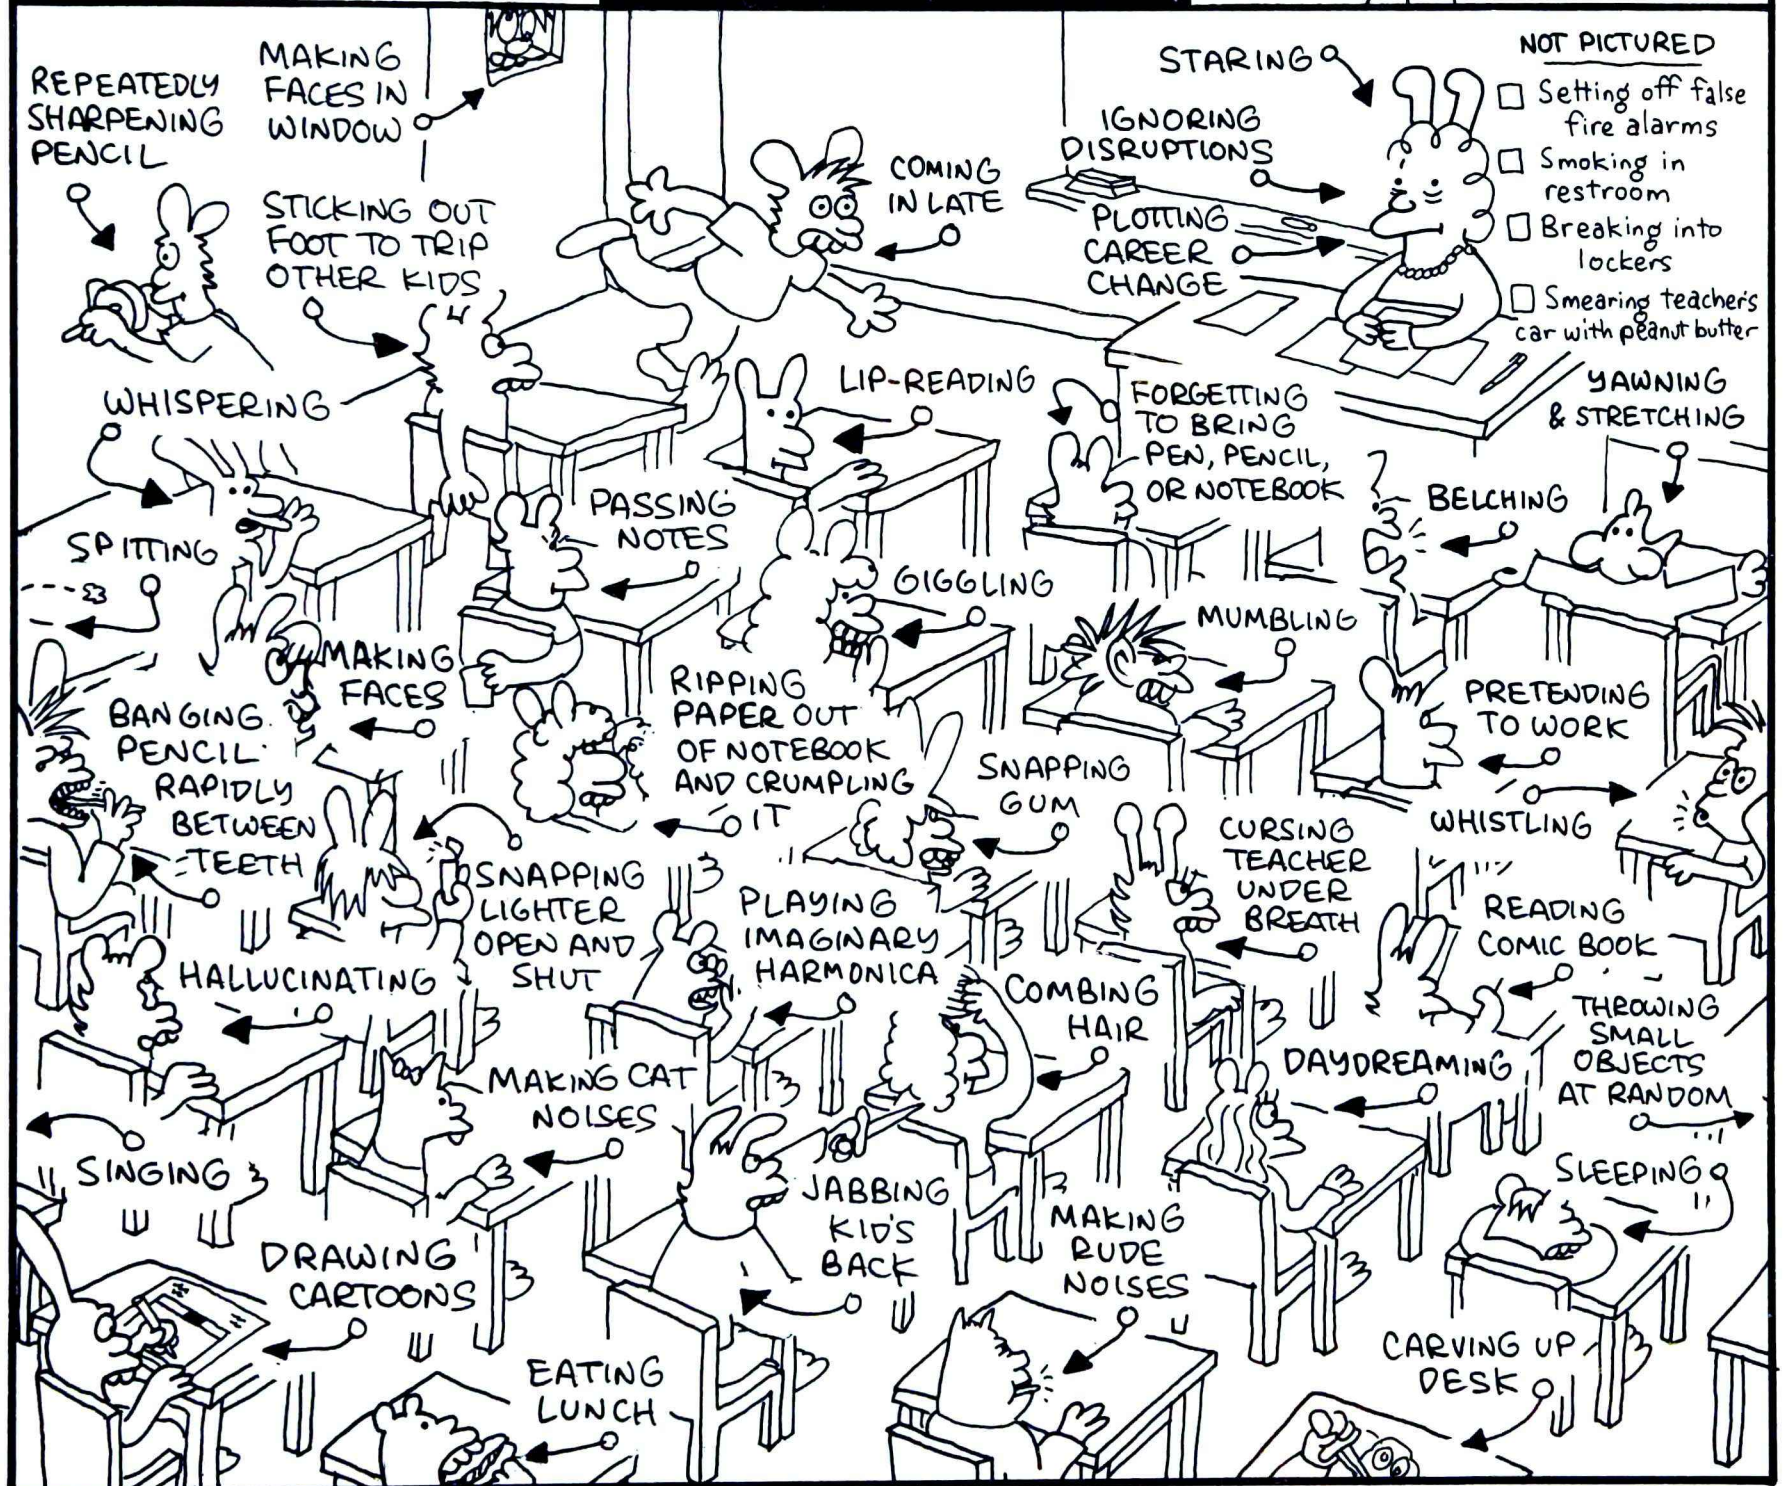 REPEATEDLY
SHARPENING
PENCIL
MAKING
FACES IN
WINDOW
STICKING OUT
FOOT TO TRIP
OTHER KIDS
COMING
IN LATE
STARING
IGNORING
DISRUPTIONS
PLOTTING
CAREER
CHANGE
NOT PICTURED
Setting off false
fire alarms
Smoking in
restroom
Breaking into
lockers
Smearing teacher's
car with peanut butter
WHISPERING
LIP-READING
FORGETTING
TO BRING
PEN, PENCIL,
OR NOTEBOOK
YAWNING
& STRETCHING
SPITTING
PASSING
NOTES
BELCHING
GIGGLING
MUMBLING
MAKING
FACES
BANGING
PENCIL
RAPIDLY
BETWEEN
TEETH
RIPPING
PAPER OUT
OF NOTEBOOK
AND CRUMPLING
IT
SNAPPING
GUM
PRETENDING
TO WORK
WHISTLING
SNAPPING
LIGHTER
OPEN AND
SHUT
PLAYING
IMAGINARY
HARMONICA
CURSING
TEACHER
UNDER
BREATH
READING
COMIC BOOK
HALLUCINATING
COMBING
HAIR
THROWING
SMALL
OBJECTS
AT RANDOM
MAKING CAT
NOISES
DAYDREAMING
SINGING
JABBING
KID'S
BACK
MAKING
RUDE
NOISES
SLEEPING
DRAWING
CARTOONS
EATING
LUNCH
CARVING UP
DESK